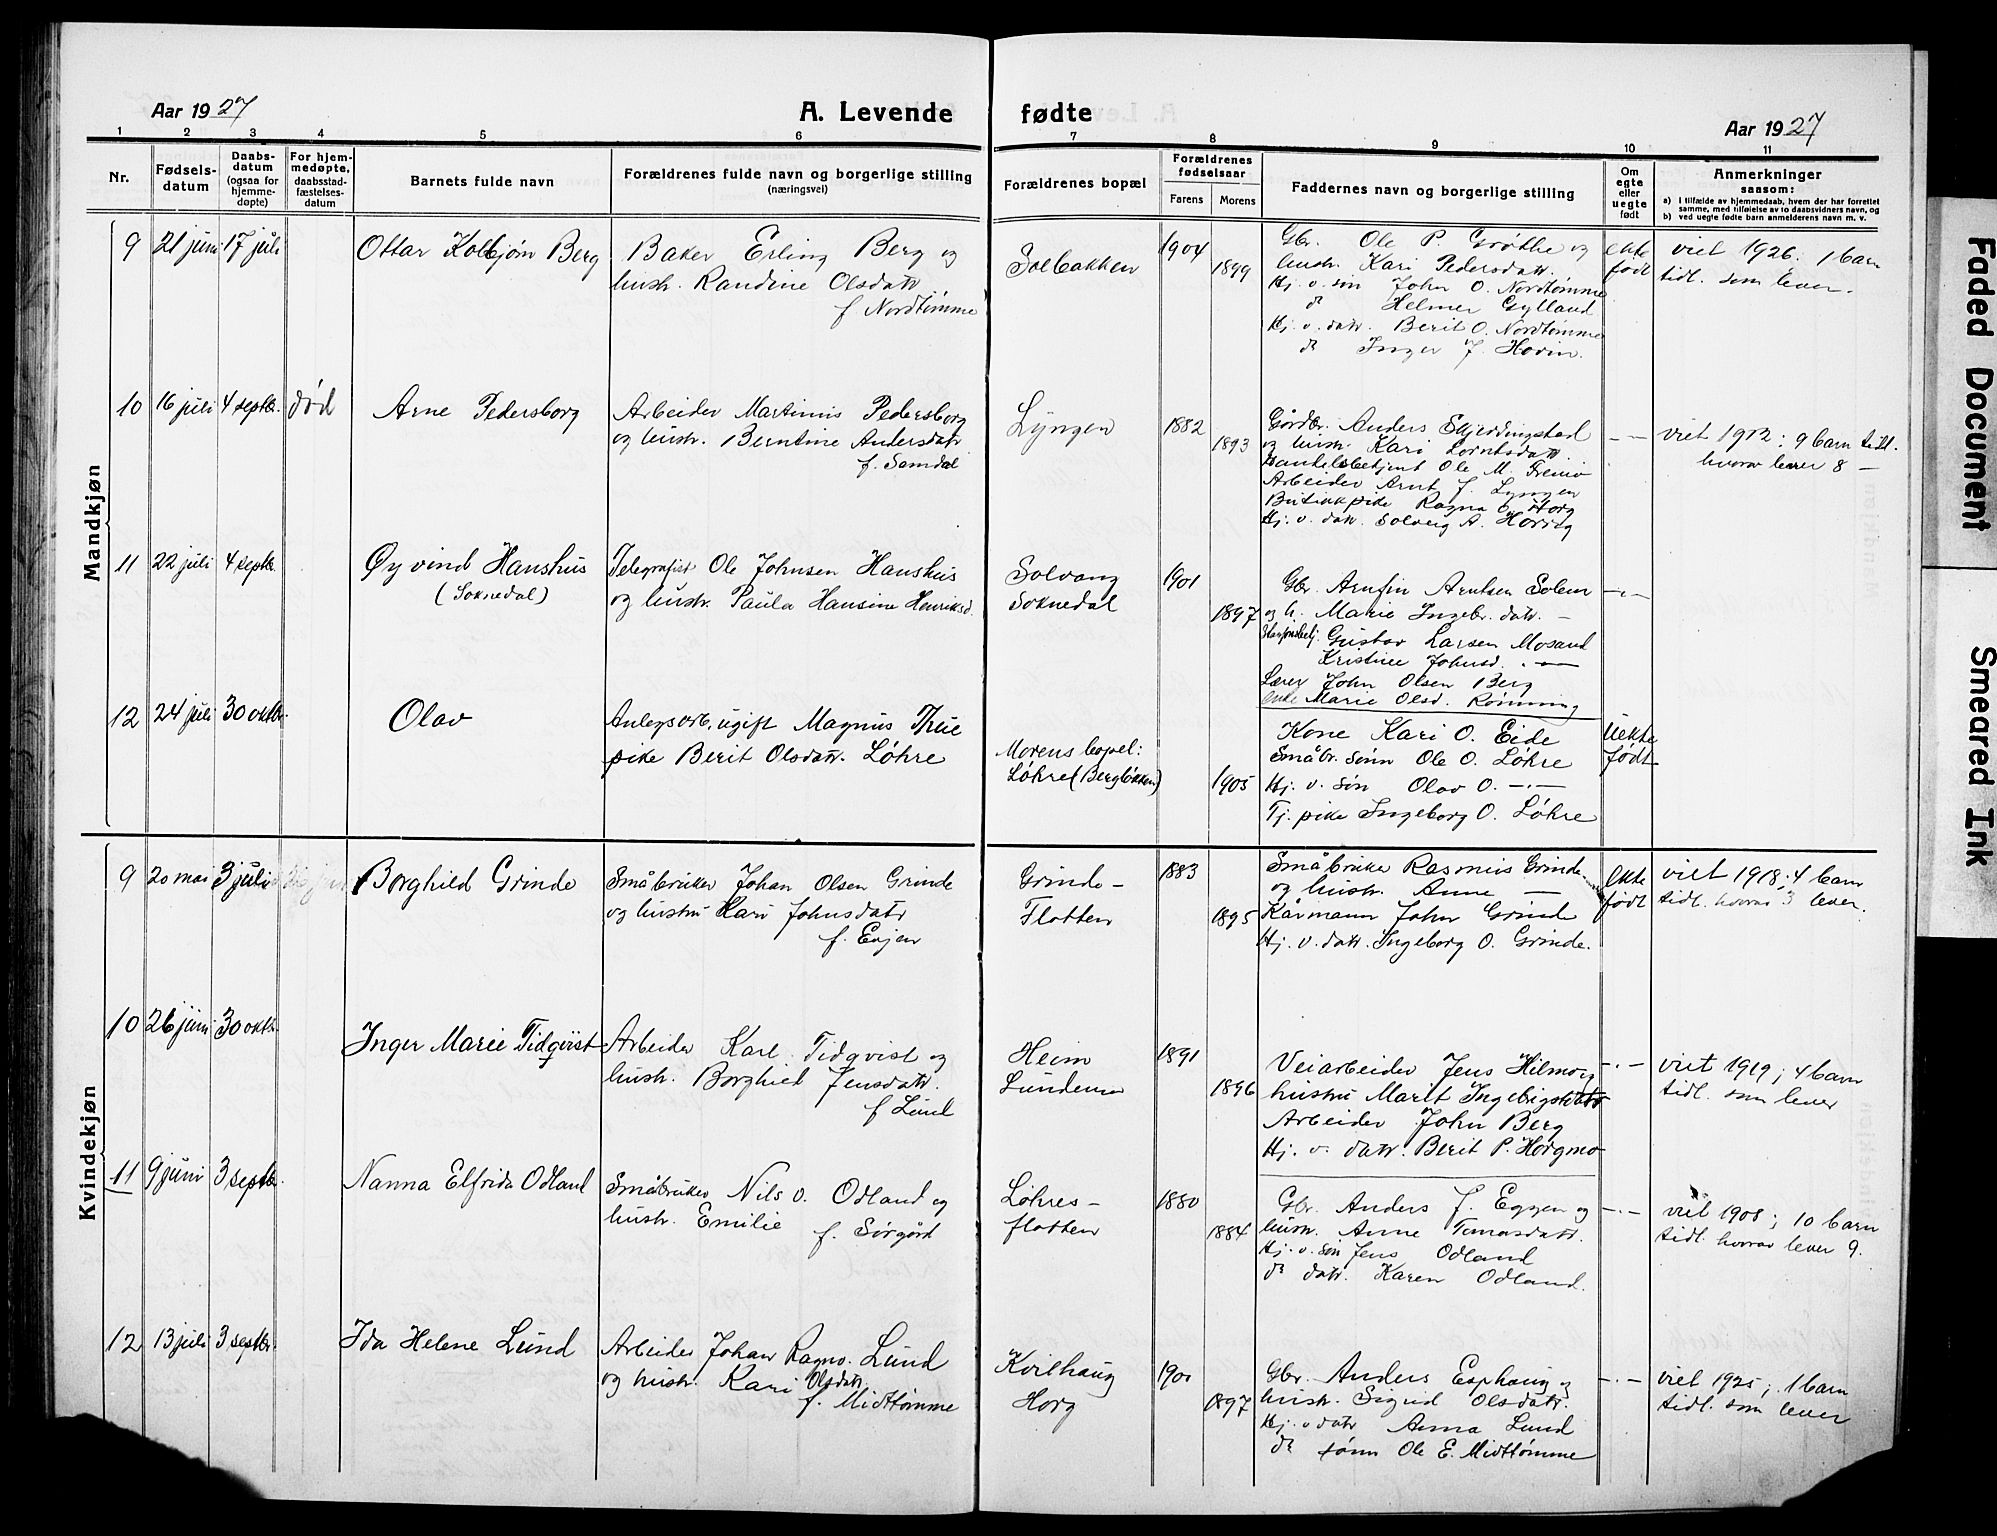 Aar 1927
A. Levende fødte
Aar 1927
1 2 3 4 5 6 7 8 9 10 11
Nr.
Fødsels-
datum
Daabs-
datum
(ogsaa for
hjemme-
døpte)
For hjem-
medøpte,
daabsstad-
fæstelses-
datum
Barnets fulde navn
Forældrenes fulde navn og borgerlige stilling
(næringsvei)
Forældrenes bopæl
Forældrenes
fødselsaar
Farens Morens
Faddernes navn og borgerlige stilling
Om
egte
eller
uegte
født
Anmerkninger
saasom:
a) I tilfælde av hjemmedaab, hvem der har forrettet
samme, med tilføielse av to daabsvidners navn, og
b) ved uegte fødte barn anmelderens navn m. v.
Mandkjøn
9 21 juni 17 juli
Ottar Kolbjørn Berg
Baker Erling Berg og
hustr. Randine Olsdatr
f. Nordtømme
Solbakken
1904
1899
Gbr. Ole P. Grøthe og
hustr. Kari Pedersdatr.
Hj. v. søn John O. Nordtømme
do Helmer Gylland
Hj. v. datr. Berit O. Nordtømme
do Inger J. Hovin.
ekte
født
viet 1926. 1 barn
tidl. som lever.
10 16 juli 4 septbr. død
Arne Pedersborg
Arbeider Martinus Pedersborg
og hustr. Berntine Andersdatr
f. Samdal
Lyngen
1882
1893
Gårdbr. Anders Skjerdingstad
og hustr. Kari Lorntsdatr.
Handelsbetjent Ole M. Fremo
Arbeider Arnt J. Lyngen
Butikkpike Ragna O. Horg
Hj. v. datr. Solveig A. Horrig
-·-
viet 1912; 9 barn tidl.
hvorav lever 8 —
11 22 juli 4 septbr.
Øyvind Hanshus
(Soknedal)
Telegrafist Ole Johnsen Hanshus
og hustr. Paula Hansine Henriksd.
Solvang
Soknedal
1901
1897
Gbr. Arnfin Arntsen Solem
og h. Marie Ingebr. datr. —
Gustav Larsen Mosand
Kristine Johnsd. -·-
Lærer John Olsen Berg
enke Marie Olsd. Rønning
-·-
12 24 juli 30 oktbr.
Olav
Anlegsarb., ugift Magnus Thue
pike Berit Olsdatr. Løhre
Morens bopel:
Løhre (Bergløkken)
1905
Kone Kari O. Eide
Småbr. sønn Ole O. Løhre
Hj. v. søn Olav O. -·-
Tj. pike Ingeborg O. Løhre
Uekte
født
Kvindekjøn
9 20 mai 3 juli
Borghild Grinde
Småbruker Johan Olsen Grinde
og hustru Kari Johnsdatr
f. Enjen
Grinde-
Flotten
1883
1895
Småbruker Rasmus Grinde
og hustr. Anne —
Kårmann John Grinde
Hj. v. datr. Ingeborg O. Grinde.
ekte
født
viet 1918; 4 barn
tidl. hvorav 3 lever.
10 26 juni 30 oktbr.
Inger Marie Tidqvist
Arbeider Karl Tidqvist og
hustr. Borghild Jensdatr.
f. Lund
Heim
Lundemo
1891
1896
Veiarbeider Jens Hilmo og
hustru Marit Ingebrigtsdatr
Arbeider John Berg
Hj. v. datr. Berit P. Horgmo
-·-
viet 1919; 4 barn
tidl. som lever
11 9 juni 3 septbr.
Nanna Elfrida Odland
Småbruker Nils O. Odland og
hustr. Emilie f. Sørgård
Løhres-
flotten
1880
1884
Gbr. Anders J. Eggen og
hustr. Anne Tomasdatr.
Hj. v. søn Jens Odland
do datr. Karen Odland.
-·-
viet 1908; 10 barn
tidl. hvorav lever 9.
12 13 juli 3 septbr.
Ida Helene Lund
Arbeider Johan Ragnv. Lund
og hustr. Kari Olsdatr.
f. Midttømme
Kvilhaug
Horg
1901
1897
Gbr. Anders Esphaug og
hustr. Sigrid Olsdatr.
Hj. v datr Anna Lund
do sønn Ole E. Midttømme
-·-
viet 1925; 1 barn
tidl. som lever
Faded Document
Smeared Ink